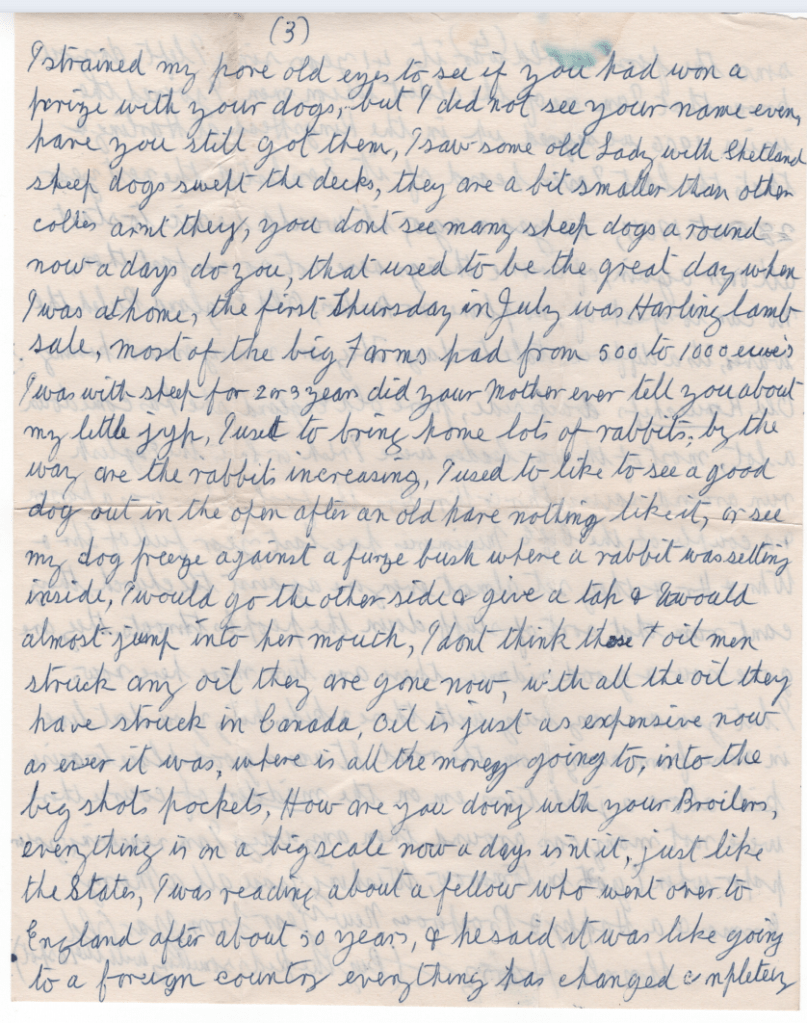 (3)
I strained my pore old eyes to see if you had won a
perize with your dogs, but I did not see your name even,
have you still got them, I saw some old Lady with Shetland
sheep dogs swept the decks, they are a bit smaller than other
collies arnt they, you dont see many sheep dogs a round
now a days do you, that used to be the great day when
I was at home, the first Thursday in July was Harling lamb
sale, most of the big Farms had from 500 to 1000 ewes
I was with sheep for 2 or 3 years did your Mother ever tell you about
my little jyp, I uset to bring home lots of rabbits, by the
way are the rabbits increasing, I used to like to see a good
dog out in the open after an old hare nothing like it, or see
my dog freeze against a furze bush where a rabbit was setting
inside, I would go the other side & give a tap & would
almost jump into her mouth, I dont think those oil men
struck any oil they are gone now, with all the oil they
have struck in Canada, Oil is just as expensive now
as ever it was, where is all the money going to, into the
big shots pockets, How are you doing with your Broilers,
everything is on a big scale now a days isnt it, just like
the States, I was reading about a fellow who went over to
England after about 50 years, & he said it was like going
to a foreign country everything has changed completely